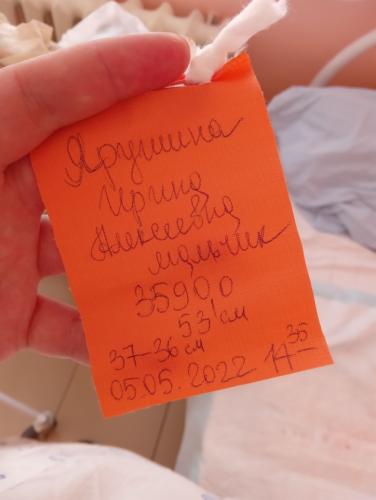 Ярушина
Ирина
Алексеевна
мальчик
35900
53 см
37-36 см
05.05.2022 14 35